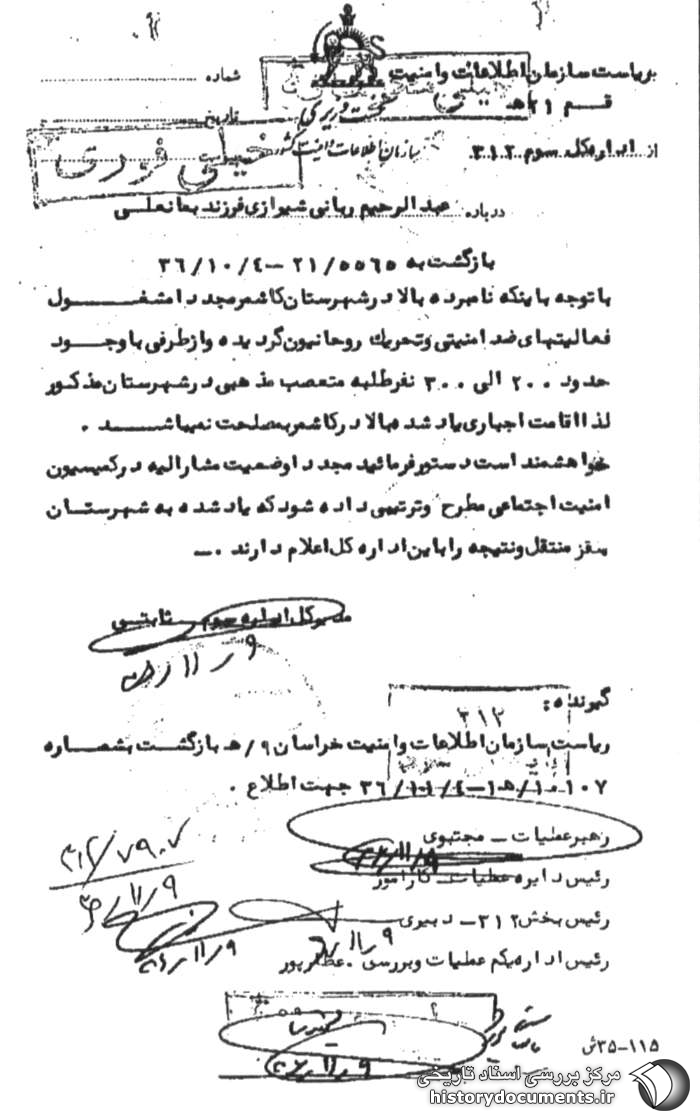 بریاست سازمان اطلاعات و امنیت
شماره
قم ۲۱ هـ
نخست وزیری
تاریخ
از اداره کل سوم ۳۱۲
سازمان اطلاعات و امنیت کشور
خیلی فوری
درباره عبدالرحیم ربانی شیرازی فرزند
بازگشت به ۲۱/۵۵۶۵ -۳۶/۱۰/۴
با توجه باینکه نامبرده بالا در شهرستان کاشمر مجددا مشغول
فعالیتهای ضد امنیتی و تحریک روحانیون گردیده و از طرفی با وجود
حدود ۲۰۰ الی ۳۰۰ نفر طلبه متعصب مذهبی در شهرستان مذکور
لذا اقامت اجباری یاد شده بالا در کاشمر بمصلحت نمیباشد .
خواهشمند است دستور فرمائید مجددا وضعیت مشارالیه در کمیسیون
امنیت اجتماعی مطرح و ترتیبی داده شود که یاد شده به شهرستان
سقز منتقل و نتیجه را باین اداره کل اعلام دارند .ـ
مدیر کل اداره سوم ثابتی
۱۱/۹
گیرنده :
۳۱۲
ریاست سازمان اطلاعات و امنیت خراسان ۹/هـ بازگشت بشماره
جهت اطلاع .
رهبر عملیات ـ مجتبوی
۳۱۲/۷۹۰۷
رئیس دایره عملیات ـ کارآموز
رئیس بخش ۳۱۲ـ دبیری
رئیس اداره یکم عملیات و بررسی . عطارپور
۱۱/۹
۳۵-۱۱۵ش
مرکز بررسی اسناد تاریخی
historydocuments.ir